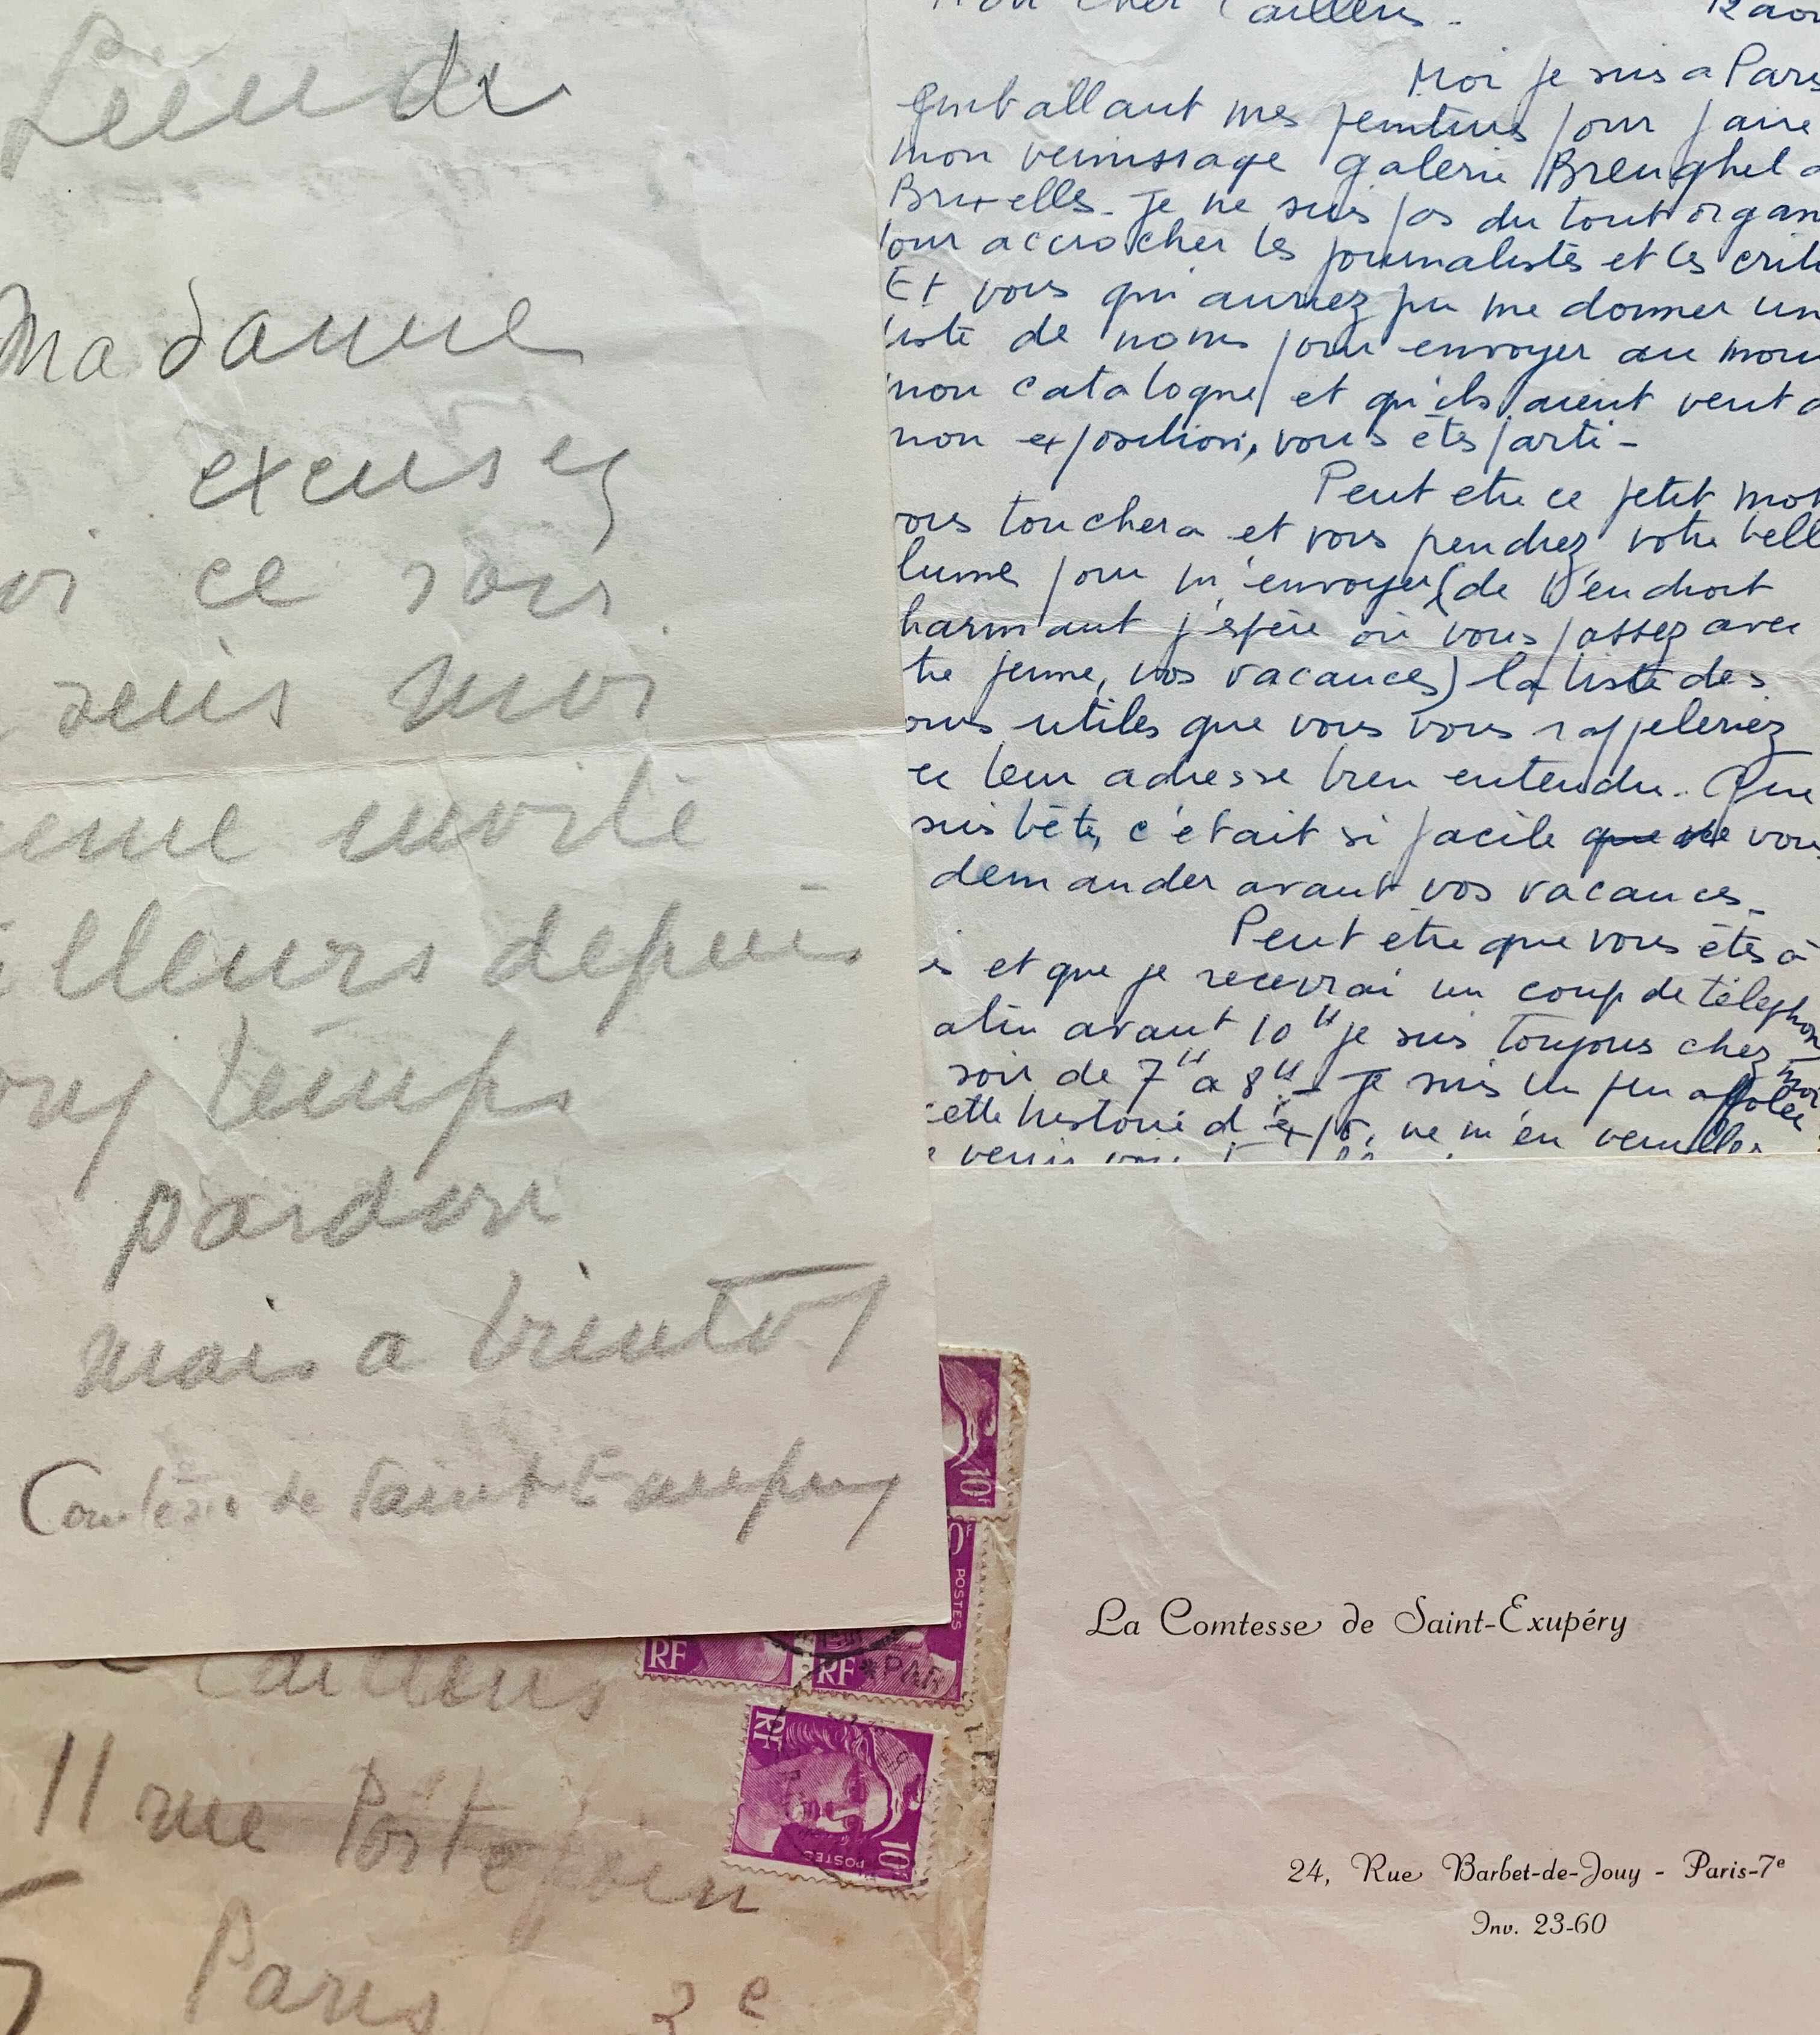 Lundi
Madame
excusez
ce soir
suis moi
invité
illeurs depuis
temps
pardon
mais a bientot
Comtesse de Saint Exupery
Mon cher Cailleus -
12 aou
Moi je suis a Paris
Emballant mes peintures pour faire
mon vernissage galerie Breughel a
Bruxelles - Je ne suis pas du tout organ
our accrocher les journalistes et les criti
Et vous qui auriez pu me donner un
iste de noms pour envoyer au moin
mon catalogue et qu'ils aient vent d
mon exposition, vous êtes parti -
Peut etre ce petit mot
ous touchera et vous pendrez votre bell
lume pour m'envoyer (de l'endroit
harmant j'espère où vous passez avec
tre femme, vos vacances) la liste des
oms utiles que vous vous rappeleriez
ec leur adresse bien entendu. Que
suis bête, c'était si facile que de vous
demander avant vos vacances -
Peut etre que vous êtes à
is et que je recevrai un coup de téléphon
atin avant 10 H je suis toujours chez moi
soir de 7 H a 8 H - Je suis un peu affolée
cette histoire d'expo, ne m'en veuillez
venir voir
10F
0F
POSTES
RF
RF
*PAR
Cailleus
RF
POSTES
10F
11 rue Portefoin
Paris 3e
La Comtesse de Saint-Exupéry
24, Rue Barbet-de-Jouy - Paris-7e
Inv. 23-60